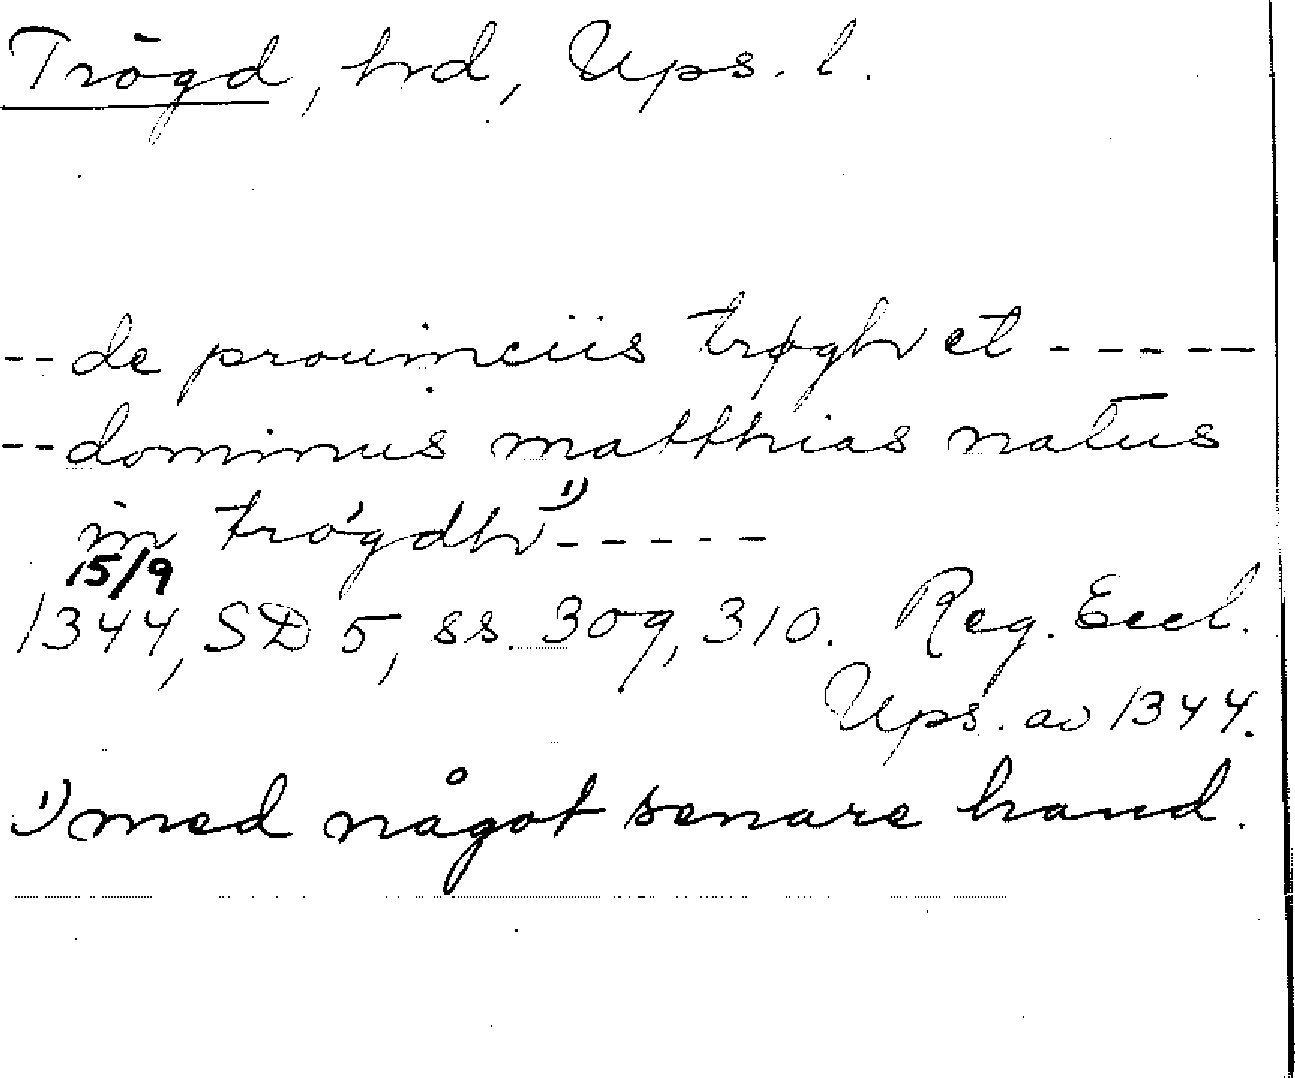 Trögd, hd, Ups. l.
-- de prouinciis trøgh et -----
-- dominus matthias natus
in tró́gdh 1) -----
15/9
1344, SD 5, ss. 309, 310. Reg. Eccl.
Ups. av 1344.
1) med något senare hand.